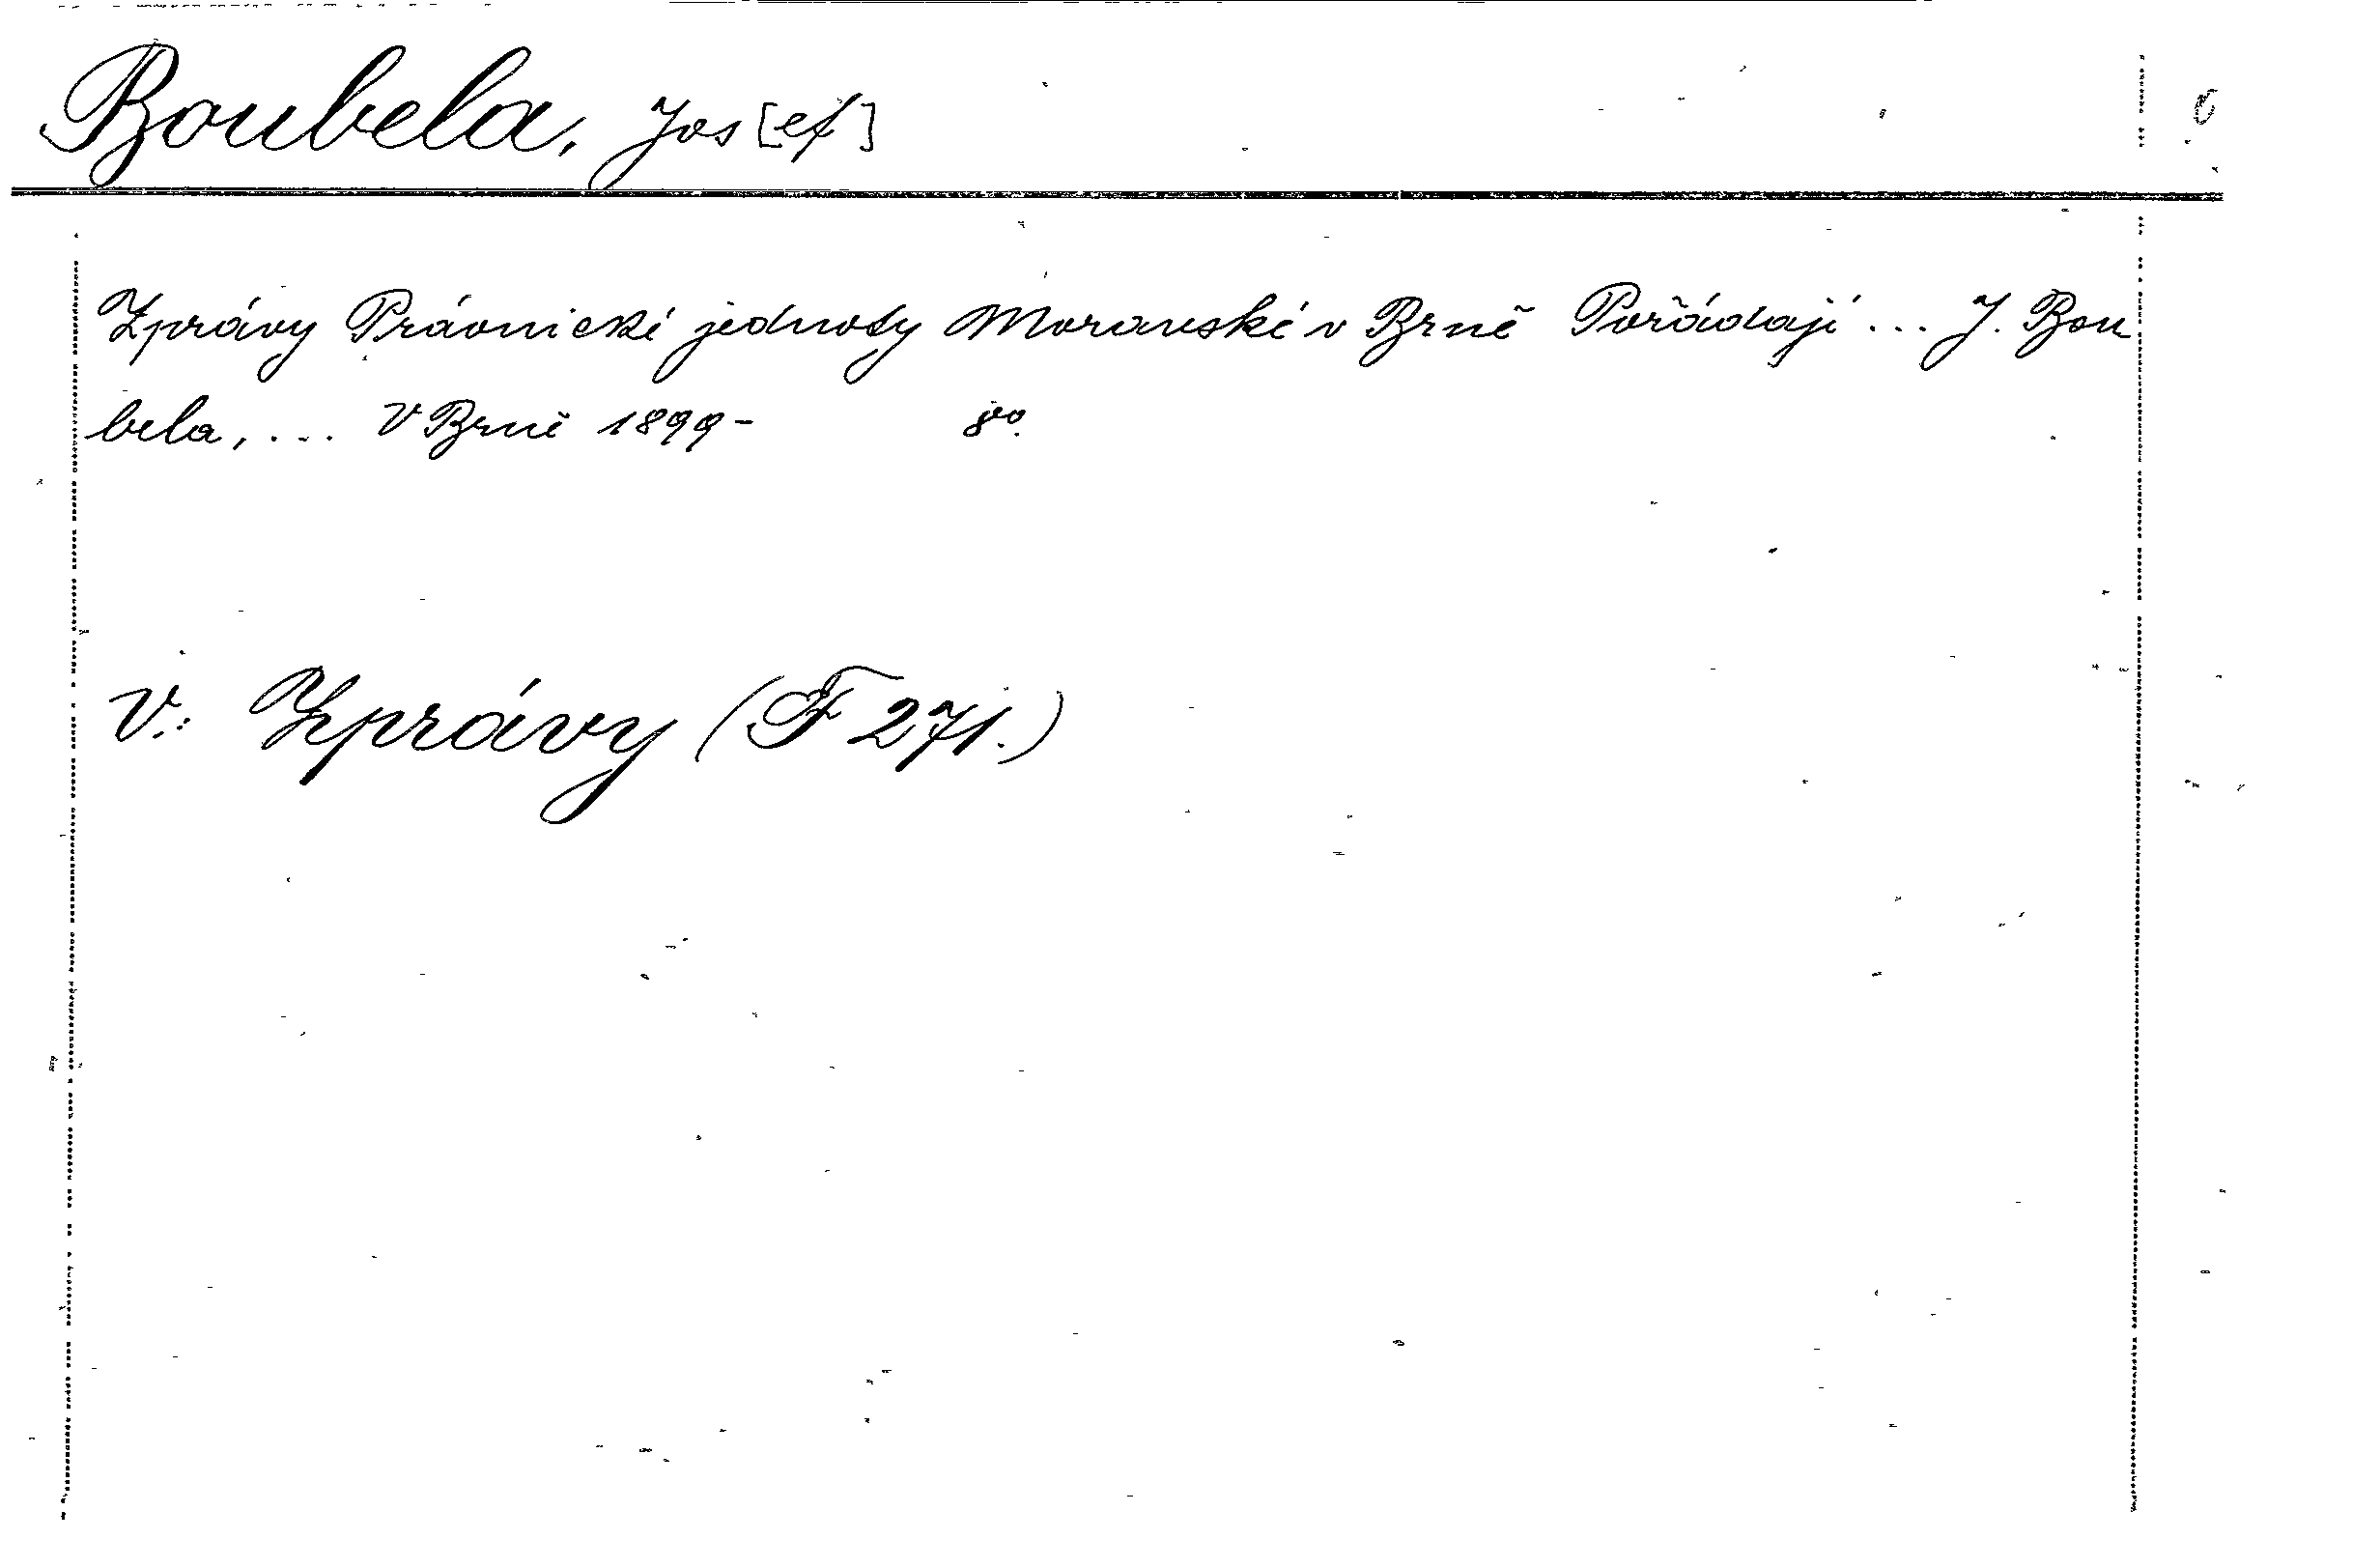 Boubela, Jos[ef]
Zprávy Právnické jednoty Moravské v Brně Pořádají ... J. Bou
bela, ... V Brně 1899- 8º.
V.: Zprávy (F 271.)